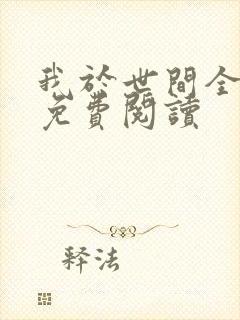 我於世間全
免費閱讀
釋法